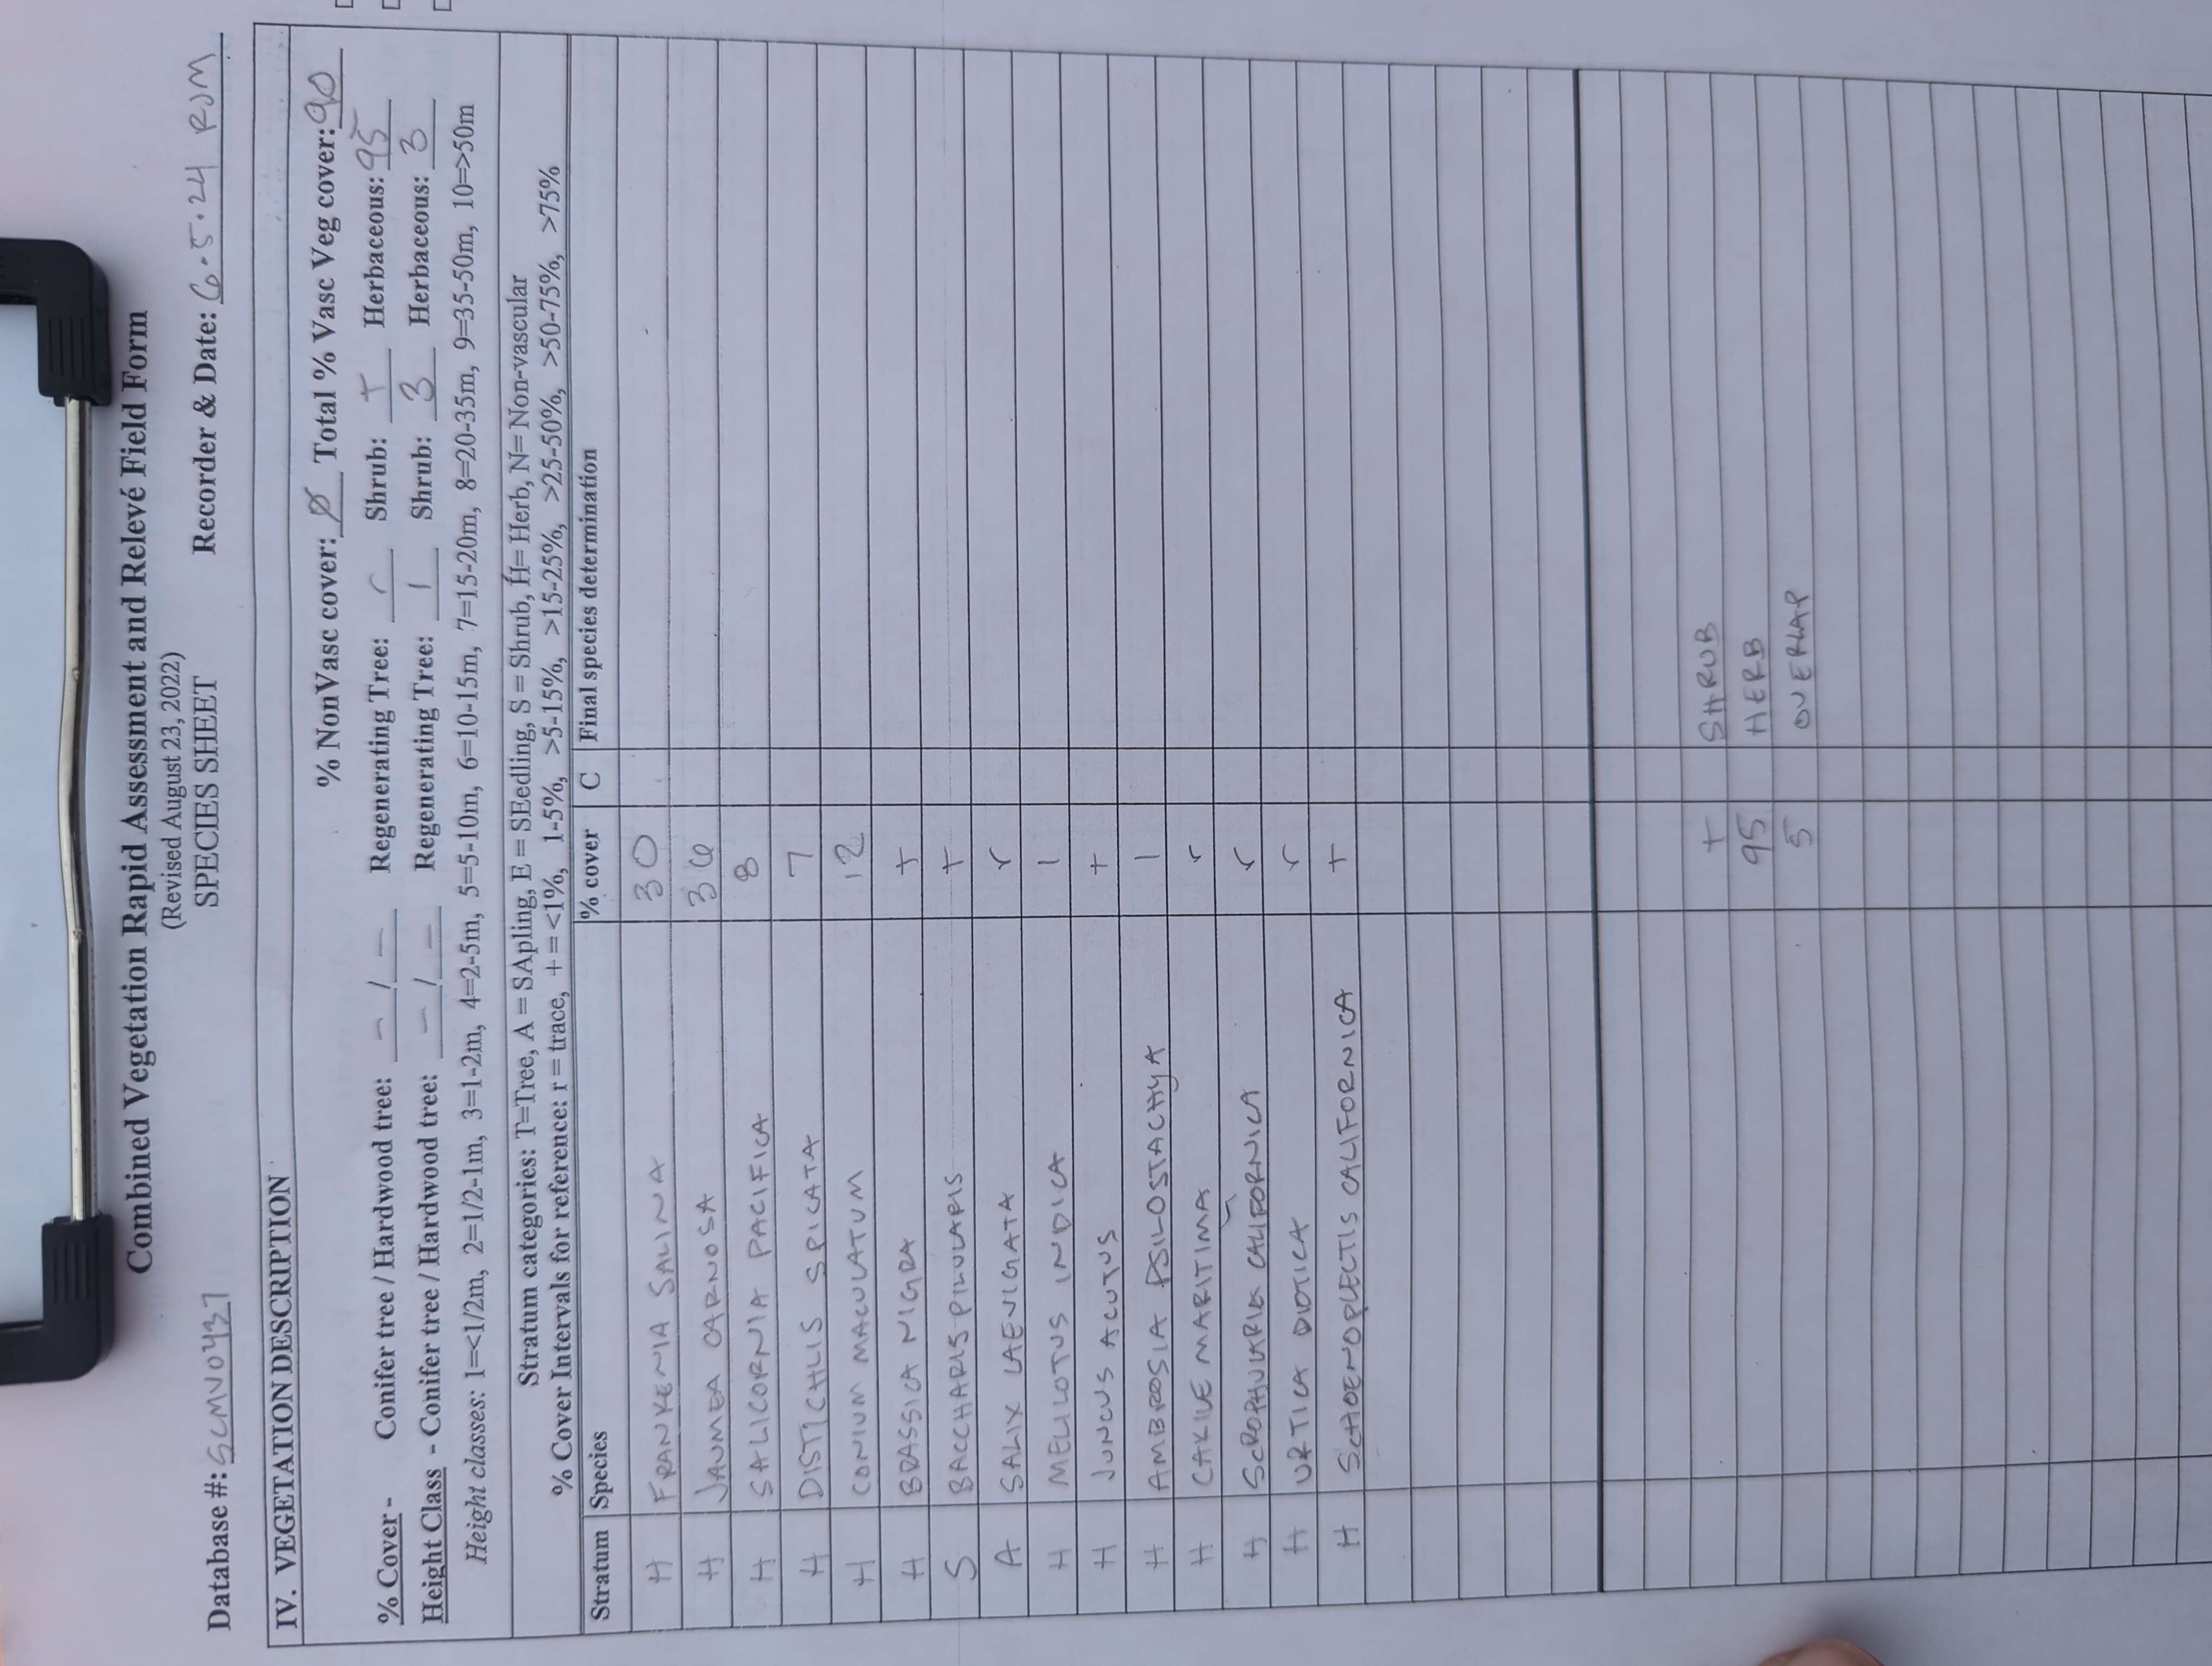 Combined Vegetation Rapid Assessment and Relevé Field Form
(Revised August 23, 2022)
SPECIES SHEET
Database #: SCMV0437 Recorder & Date: 6.5.24 RJM
IV. VEGETATION DESCRIPTION
% NonVasc cover: Ø Total % Vasc Veg cover: 90
% Cover - Conifer tree / Hardwood tree: - / - Regenerating Tree: r Shrub: + Herbaceous: 95
Height Class - Conifer tree / Hardwood tree: - / - Regenerating Tree: 1 Shrub: 3 Herbaceous: 3
Height classes: 1=<1/2m, 2=1/2-1m, 3=1-2m, 4=2-5m, 5=5-10m, 6=10-15m, 7=15-20m, 8=20-35m, 9=35-50m, 10=>50m
Stratum categories: T=Tree, A = SApling, E = SEedling, S = Shrub, H= Herb, N= Non-vascular
% Cover Intervals for reference: r = trace, + = <1%, 1-5%, >5-15%, >15-25%, >25-50%, >50-75%, >75%
Stratum Species % cover C Final species determination
H FRANKENIA SALINA 30
H JAUMEA CARNOSA 36
H SALICORNIA PACIFICA 8
H DISTICHLIS SPICATA 7
H CONIUM MACULATUM 12
H BRASSICA NIGRA +
S BACCHARIS PILULARIS +
A SALIX LAEVIGATA r
H MELILOTUS INDICA 1
H JUNCUS ACUTUS +
H AMBROSIA PSILOSTACHYA 1
H CAKILE MARITIMA r
H SCROPHULARIA CALIFORNICA r
H URTICA DIOTICA r
H SCHOENOPLECTIS CALIFORNICA +
+ SHRUB
95 HERB
5 OVERLAP